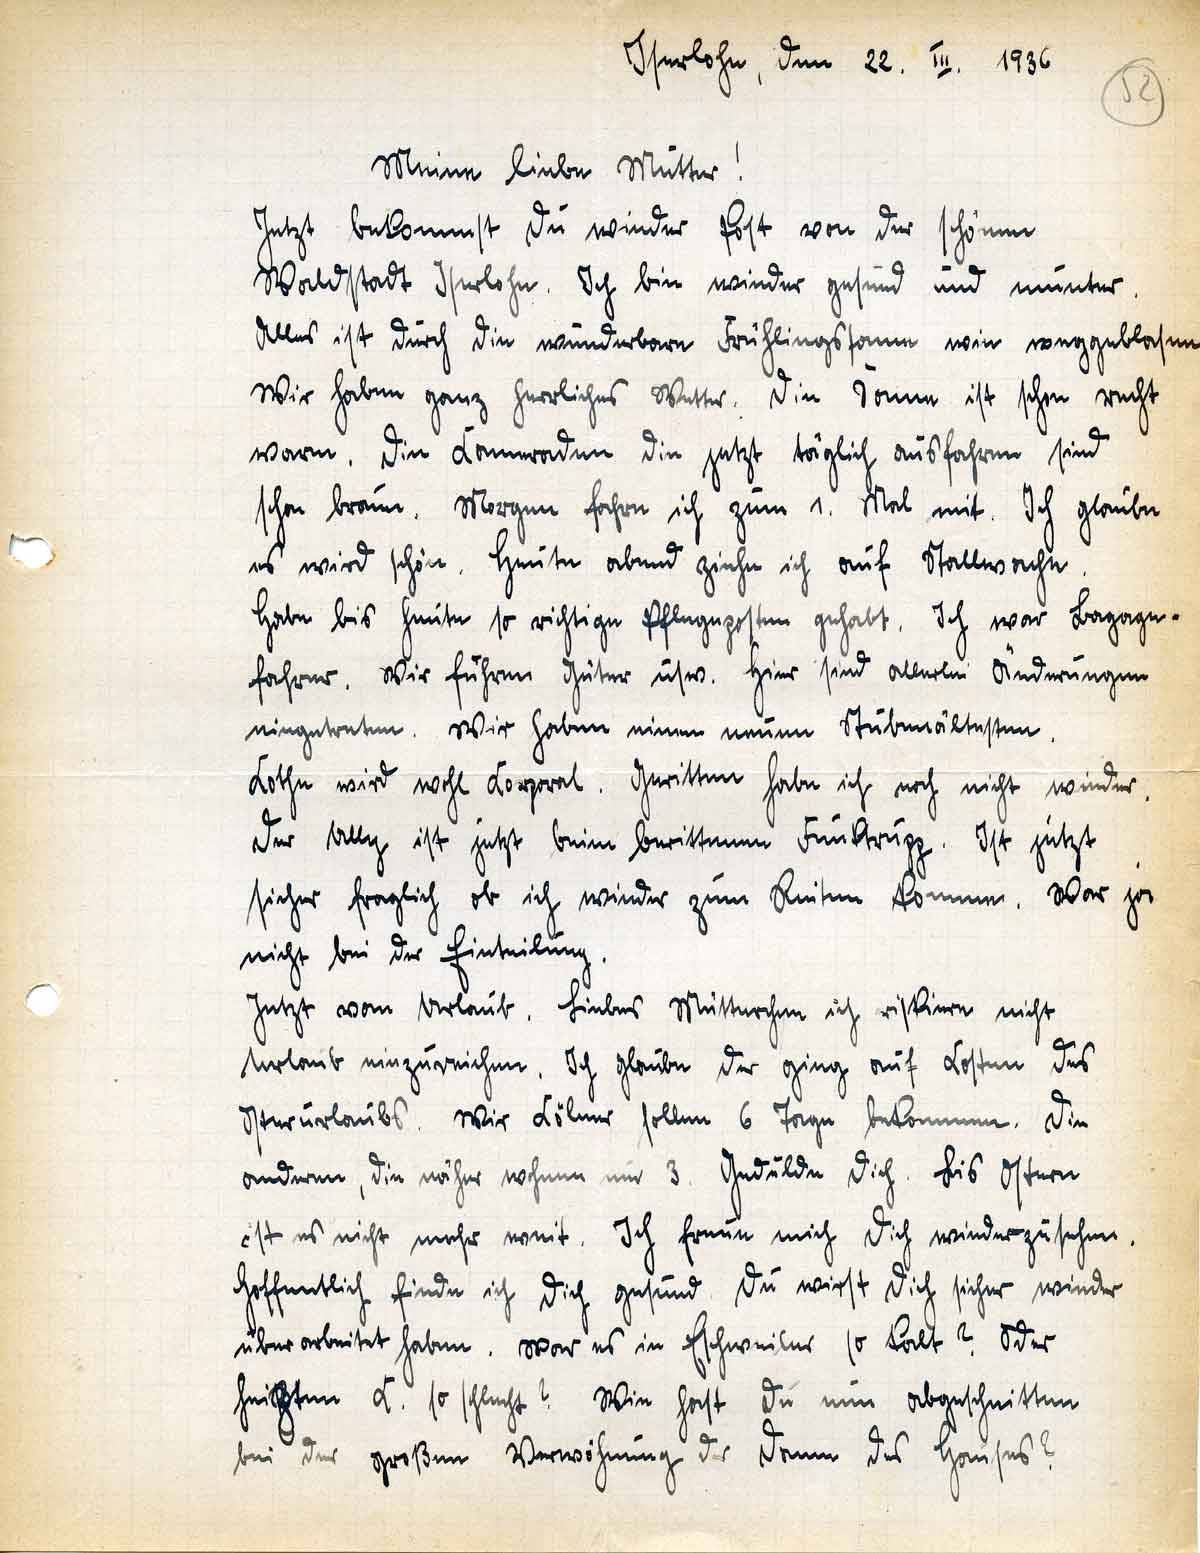 Iserlohn, den 22. III. 1936
52
Meine liebe Mutter!
Jetzt bekommst Du wieder Post von der schönen
Waldstadt Iserlohn. Ich bin wieder gesund und munter.
Alles ist durch die wunderbare Frühlingssonne wie weggeblasen
Wir haben ganz herrliches Wetter. Die Sonne ist schon recht
warm. Die Kameraden die jetzt täglich ausfahren sind
schon braun. Morgen fahre ich zum 1. Mal mit. Ich glaube
es wird schön. Heute abend ziehe ich auf Stallwache.
Habe bis heute so richtige Pflegeposten gehabt. Ich war Bagage-
fahrer. Wir fuhren Güter usw. Hier sind allerlei Änderungen
eingetreten. Wir haben einen neuen Stubenältesten.
Kothe wird wohl Korporal. Geritten habe ich noch nicht wieder.
Der Ully ist jetzt beim berittenen Funktrupp. Ist jetzt
sicher fraglich ob ich wieder zum Reiten komme. War ja
nicht bei der Einteilung.
Jetzt vom Urlaub. Liebes Mutterchen ich riskiere nicht
Urlaub einzureichen. Ich glaube der ging auf Kosten des
Osterurlaubs. Wir Kölner sollen 6 Tage bekommen. Die
anderen, die näher wohnen nur 3. Gedulde Dich. Bis Ostern
ist es nicht mehr weit. Ich freue mich Dich wiederzusehen.
Hoffentlich finde ich Dich gesund. Du wirst Dich sicher wieder
überarbeitet haben. War es in Eschweiler so kalt? Oder
heizten K. so schlecht? Wie hast Du nun abgeschnitten
bei der großen Verwöhnung der Dame des Hauses?